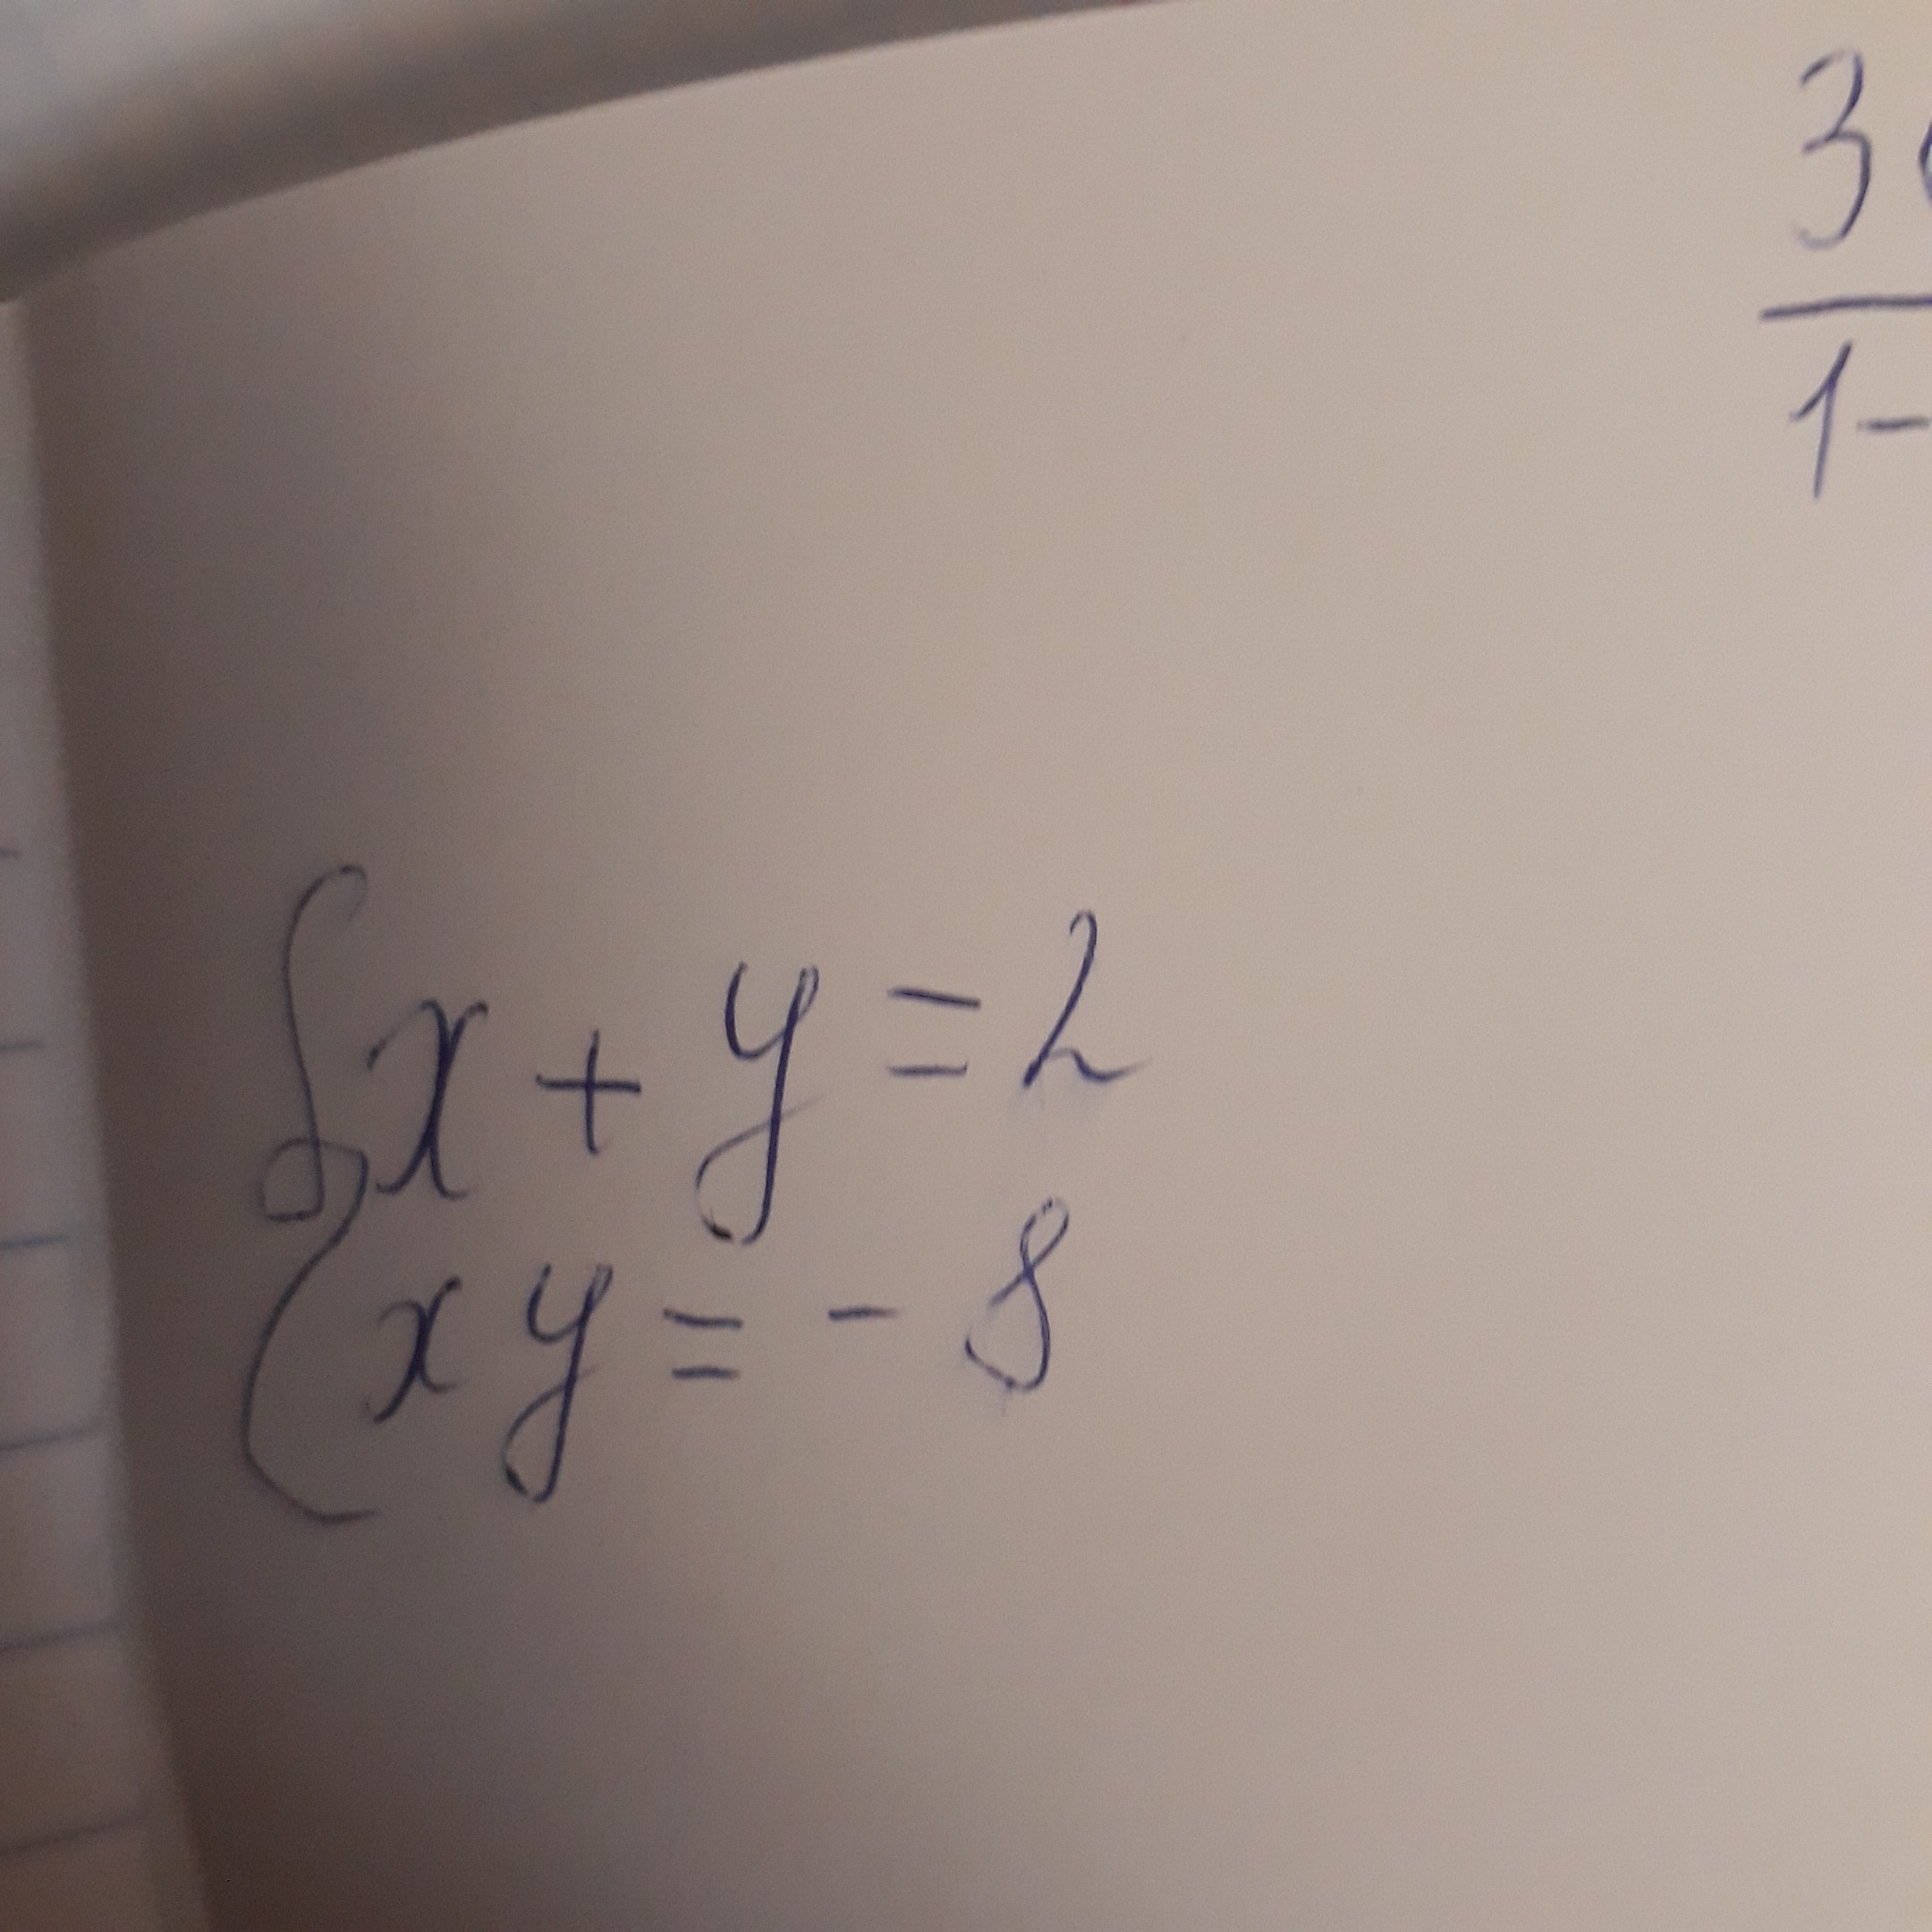 3
1-
x + y = 2
xy = - 8